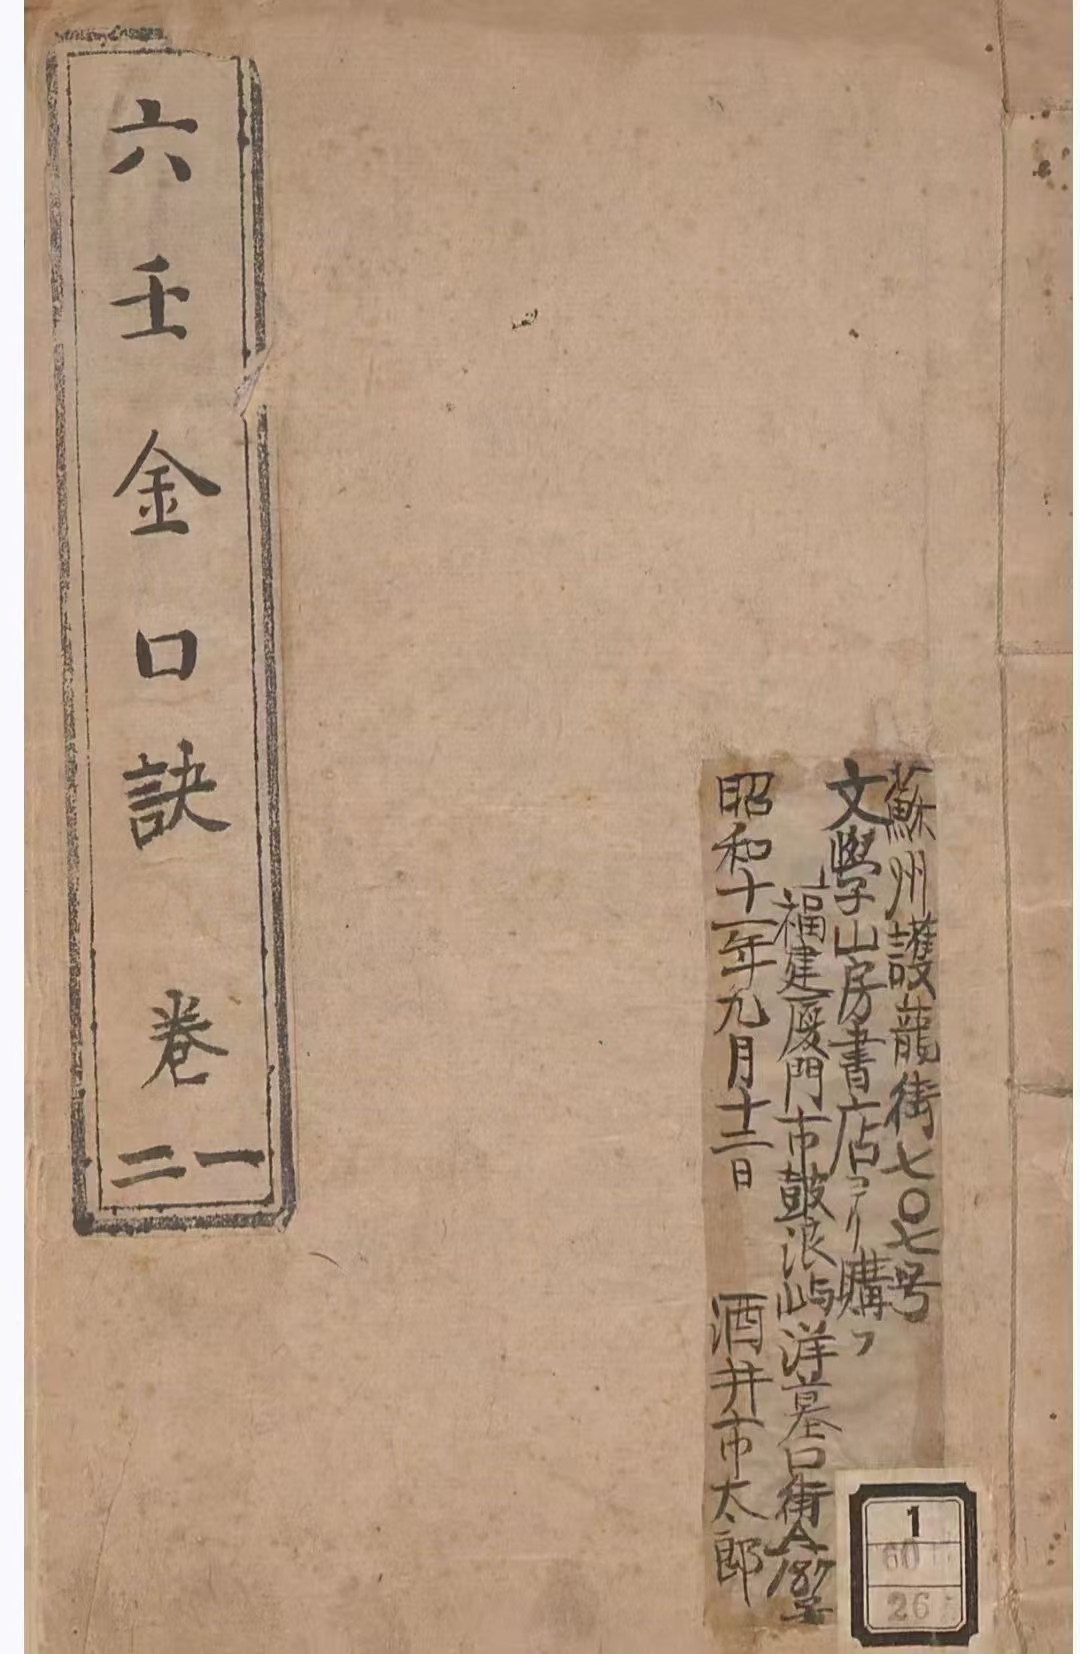 蘇州護龍街七〇七号
文學山房書店ヨリ購フ
福建厦門市鼓浪屿洋墓口街A187号
昭和十一年九月十二日 酒井市太郎
六壬金口訣 卷
一
二
1
60
26